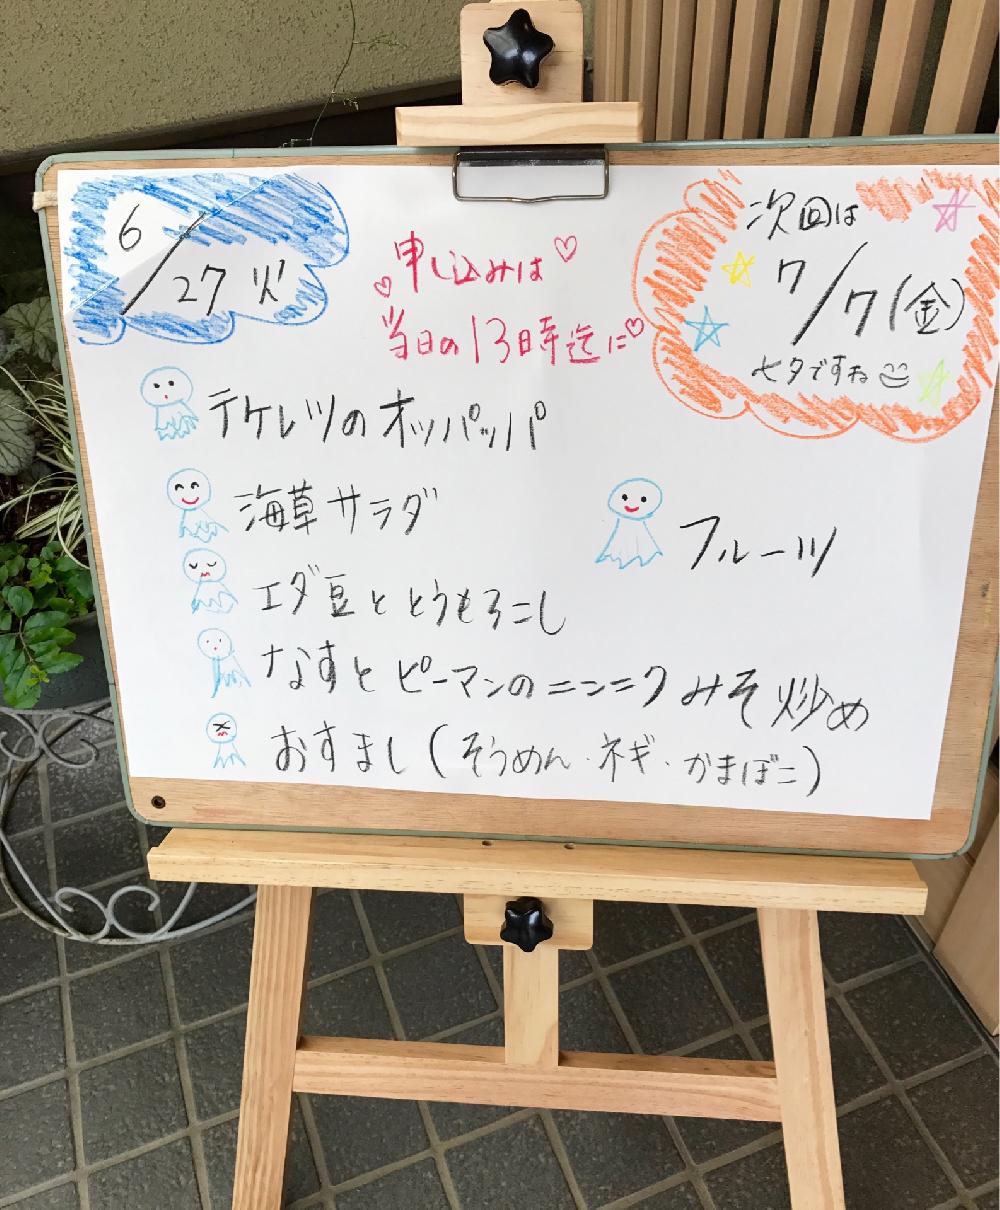 6/27 火
申し込みは
当日の13時迄に
次回は
7/7(金)
七夕ですね
テケレツのオッパッパ
海草サラダ
エダ豆ととうもろこし
なすとピーマンのニンニクみそ炒め
おすまし(そうめん・ネギ・かまぼこ)
フルーツ